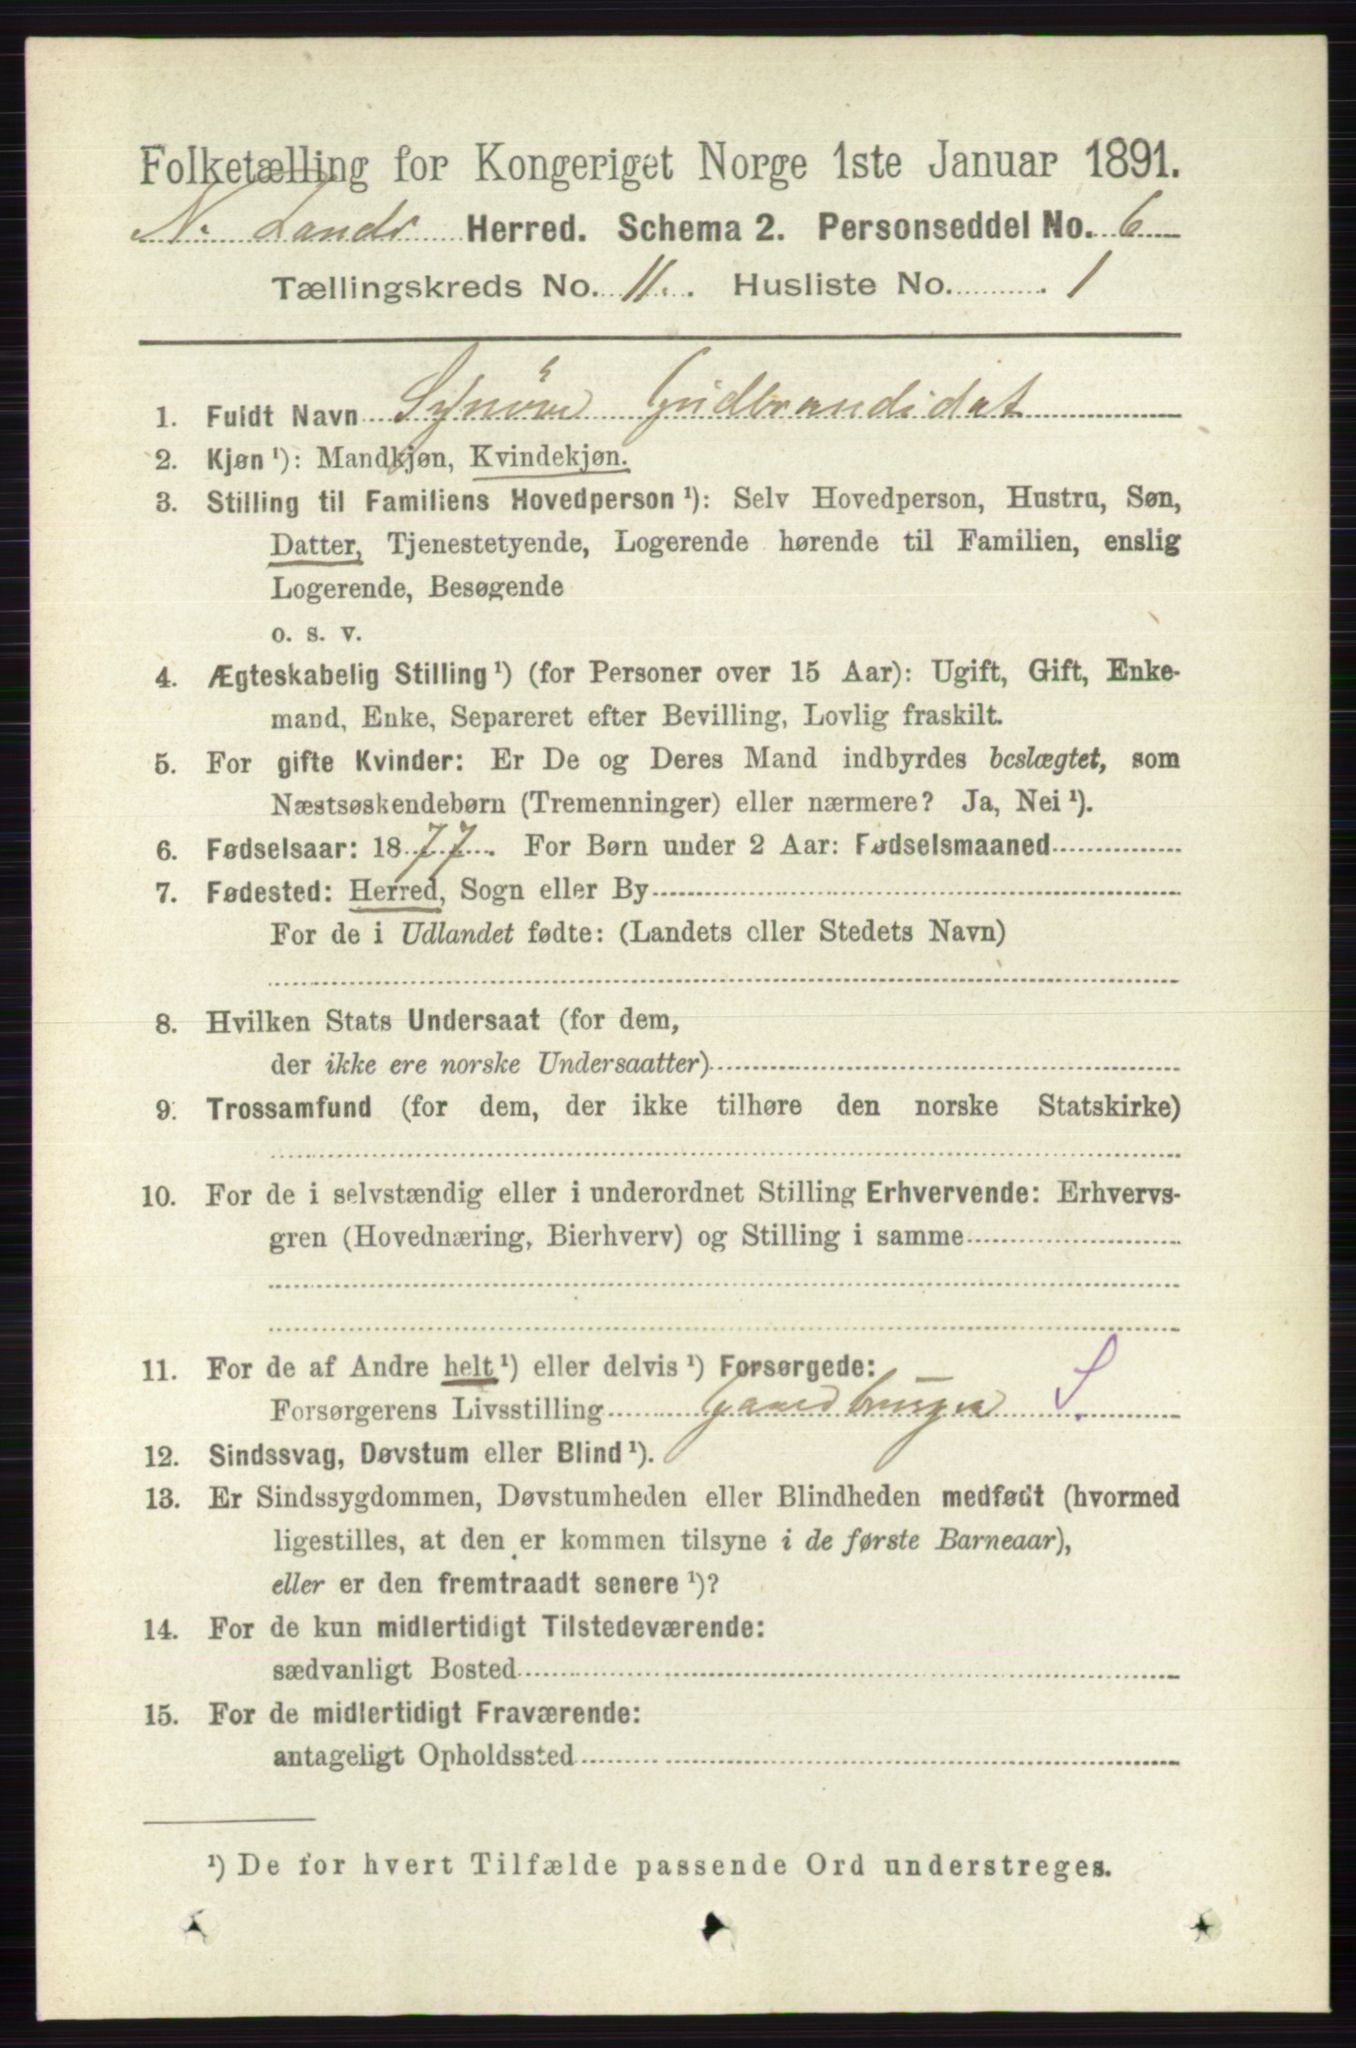 Folketælling for Kongeriget Norge 1ste Januar 1891.
N. Lands Herred. Schema 2. Personseddel No. 6
Tællingskreds No. 11. Husliste No. 1
1. Fuldt Navn Synöve Gudbrandsdat
2. Kjøn ¹): Mandkjøn, Kvindekjøn.
3. Stilling til Familiens Hovedperson ¹): Selv Hovedperson, Hustru, Søn,
Datter, Tjenestetyende, Logerende hørende til Familien, enslig
Logerende, Besøgende
o. s. v.
4. Ægteskabelig Stilling ¹) (for Personer over 15 Aar): Ugift, Gift, Enke-
mand, Enke, Separeret efter Bevilling, Lovlig fraskilt.
5. For gifte Kvinder: Er De og Deres Mand indbyrdes beslægtet, som
Næstsøskendebørn (Tremenninger) eller nærmere? Ja, Nei ¹).
6. Fødselsaar: 1877. For Børn under 2 Aar: Fødselsmaaned
7. Fødested: Herred, Sogn eller By
For de i Udlandet fødte: (Landets eller Stedets Navn)
8. Hvilken Stats Undersaat (for dem,
der ikke ere norske Undersaatter)
9. Trossamfund (for dem, der ikke tilhøre den norske Statskirke)
10. For de i selvstændig eller i underordnet Stilling Erhvervende: Erhvervs-
gren (Hovednæring, Bierhverv) og Stilling i samme
11. For de af Andre helt ¹) eller delvis ¹) Forsørgede:
Forsørgerens Livsstilling Gaardbruger S.
12. Sindssvag, Døvstum eller Blind ¹).
13. Er Sindssygdommen, Døvstumheden eller Blindheden medfødt (hvormed
ligestilles, at den er kommen tilsyne i de første Barneaar),
eller er den fremtraadt senere ¹)?
14. For de kun midlertidigt Tilstedeværende:
sædvanligt Bosted
15. For de midlertidigt Fraværende:
antageligt Opholdssted
¹) De for hvert Tilfælde passende Ord understreges.